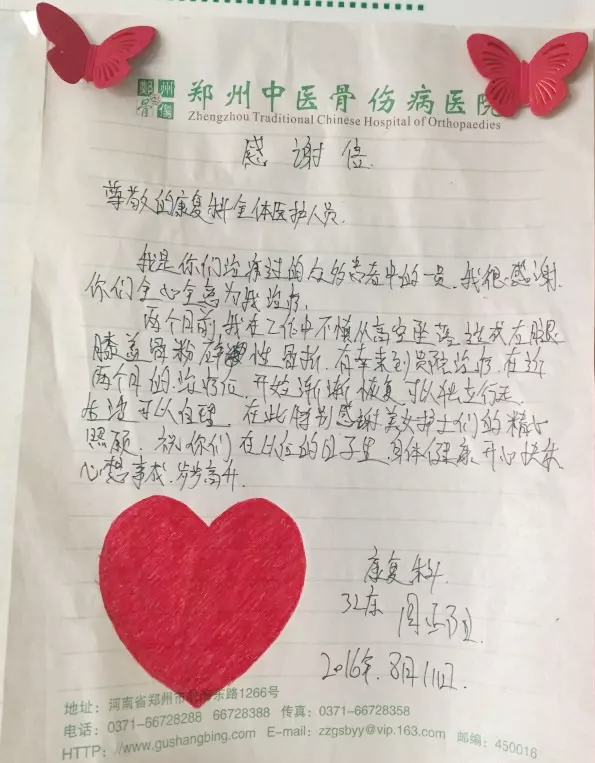 郑州骨伤
郑州中医骨伤病医院
Zhengzhou Traditional Chinese Hospital of Orthopaedies
感谢信
尊敬的康复科全体医护人员.
我是你们治疗过的众多患者中的一员. 我很感谢.
你们全心全意为我治疗.
两个月前,我在工作中不慎从高空坠落造成左腿
膝盖骨粉碎性骨折. 在来到贵院治疗. 在近
两个月的治疗后 开始渐渐恢复可以独立行走.
生活可以自理. 在此特别感谢美女护士们的精心
照顾. 祝你们在以后的日子里.身体健康 开心快乐
心想事成.步步高升.
康复科.
32床 周
2016年.8月11日.
地址:河南省郑州市 东路1266号
电话:0371-66728288 66728388 传真:0371-66728358
HTTP://www.gushangbing.com E-mail:zzgsbyy@vip.163.com 邮编:450016